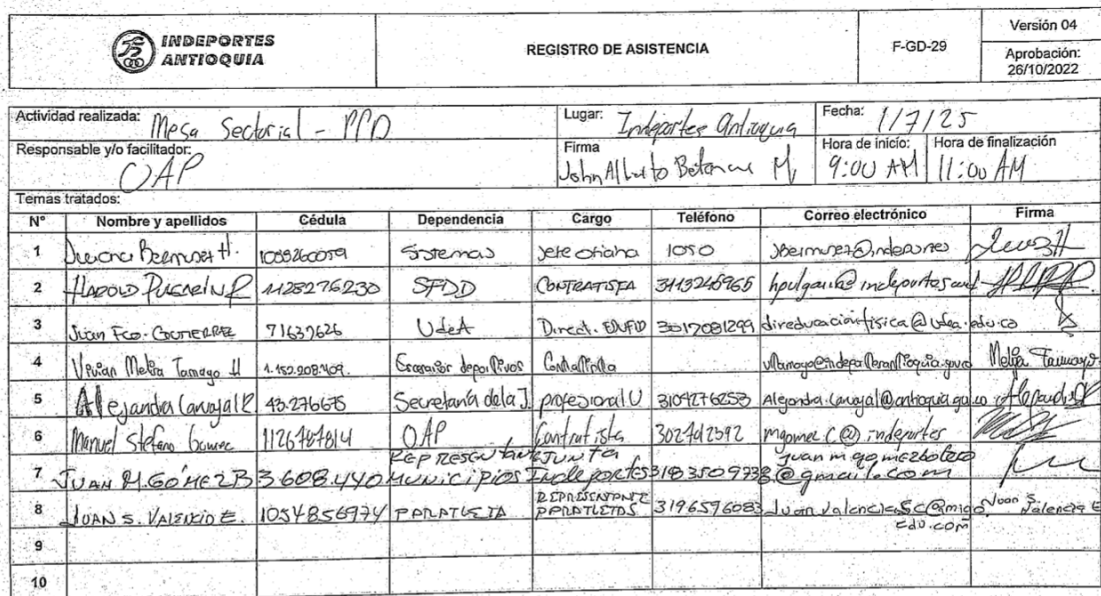 INDEPORTES
ANTIOQUIA
REGISTRO DE ASISTENCIA
F-GD-29
Versión 04
Aprobación:
26/10/2022
Actividad realizada: Mesa Sectorial - PPD
Lugar: Indeportes Antioquia
Fecha: 1/7/25
Responsable y/o facilitador: OAP
Firma John Alberto Betancur M.
Hora de inicio: 9:00 AM
Hora de finalización 11:00 AM
Temas tratados:
N° Nombre y apellidos Cédula Dependencia Cargo Teléfono Correo electrónico Firma
1 Bermudez H. Sistemas Jefe oficina 1050
2 HAROLD PULGARÍN R 1128276230 SFDD CONTRATISTA 3113245965
3 Juan Fco. GUTIERREZ 71637626 UdeA Direct. EDUFID 3017081299 direducacionfisica@udea.edu.co
4 Vivian Melisa Tamayo H 1.152.208.409 Escenarios deportivos Contratista Melisa Tamayo
5 Alejandra Carvajal R 43.276675 Secretaría de la J. profesional U 3104276253 Alejandra.carvajal@antioquia.gov.co
6 Manuel Stefano Gomez 1126787814 OAP Contratista 3027412592 mgomezC@indeportes
7 JUAN M. GÓMEZ B 3.608.440 REPRESENTANTE MUNICIPIOS JUNTA Indeportes 3183509738 juanmgomezbotero@gmail.com
8 JUAN S. VALENCIA E. 1054856974 PARATLETA REPRESENTANTE PARATLETAS 3196596083 Juan S. Valencia E
9
10